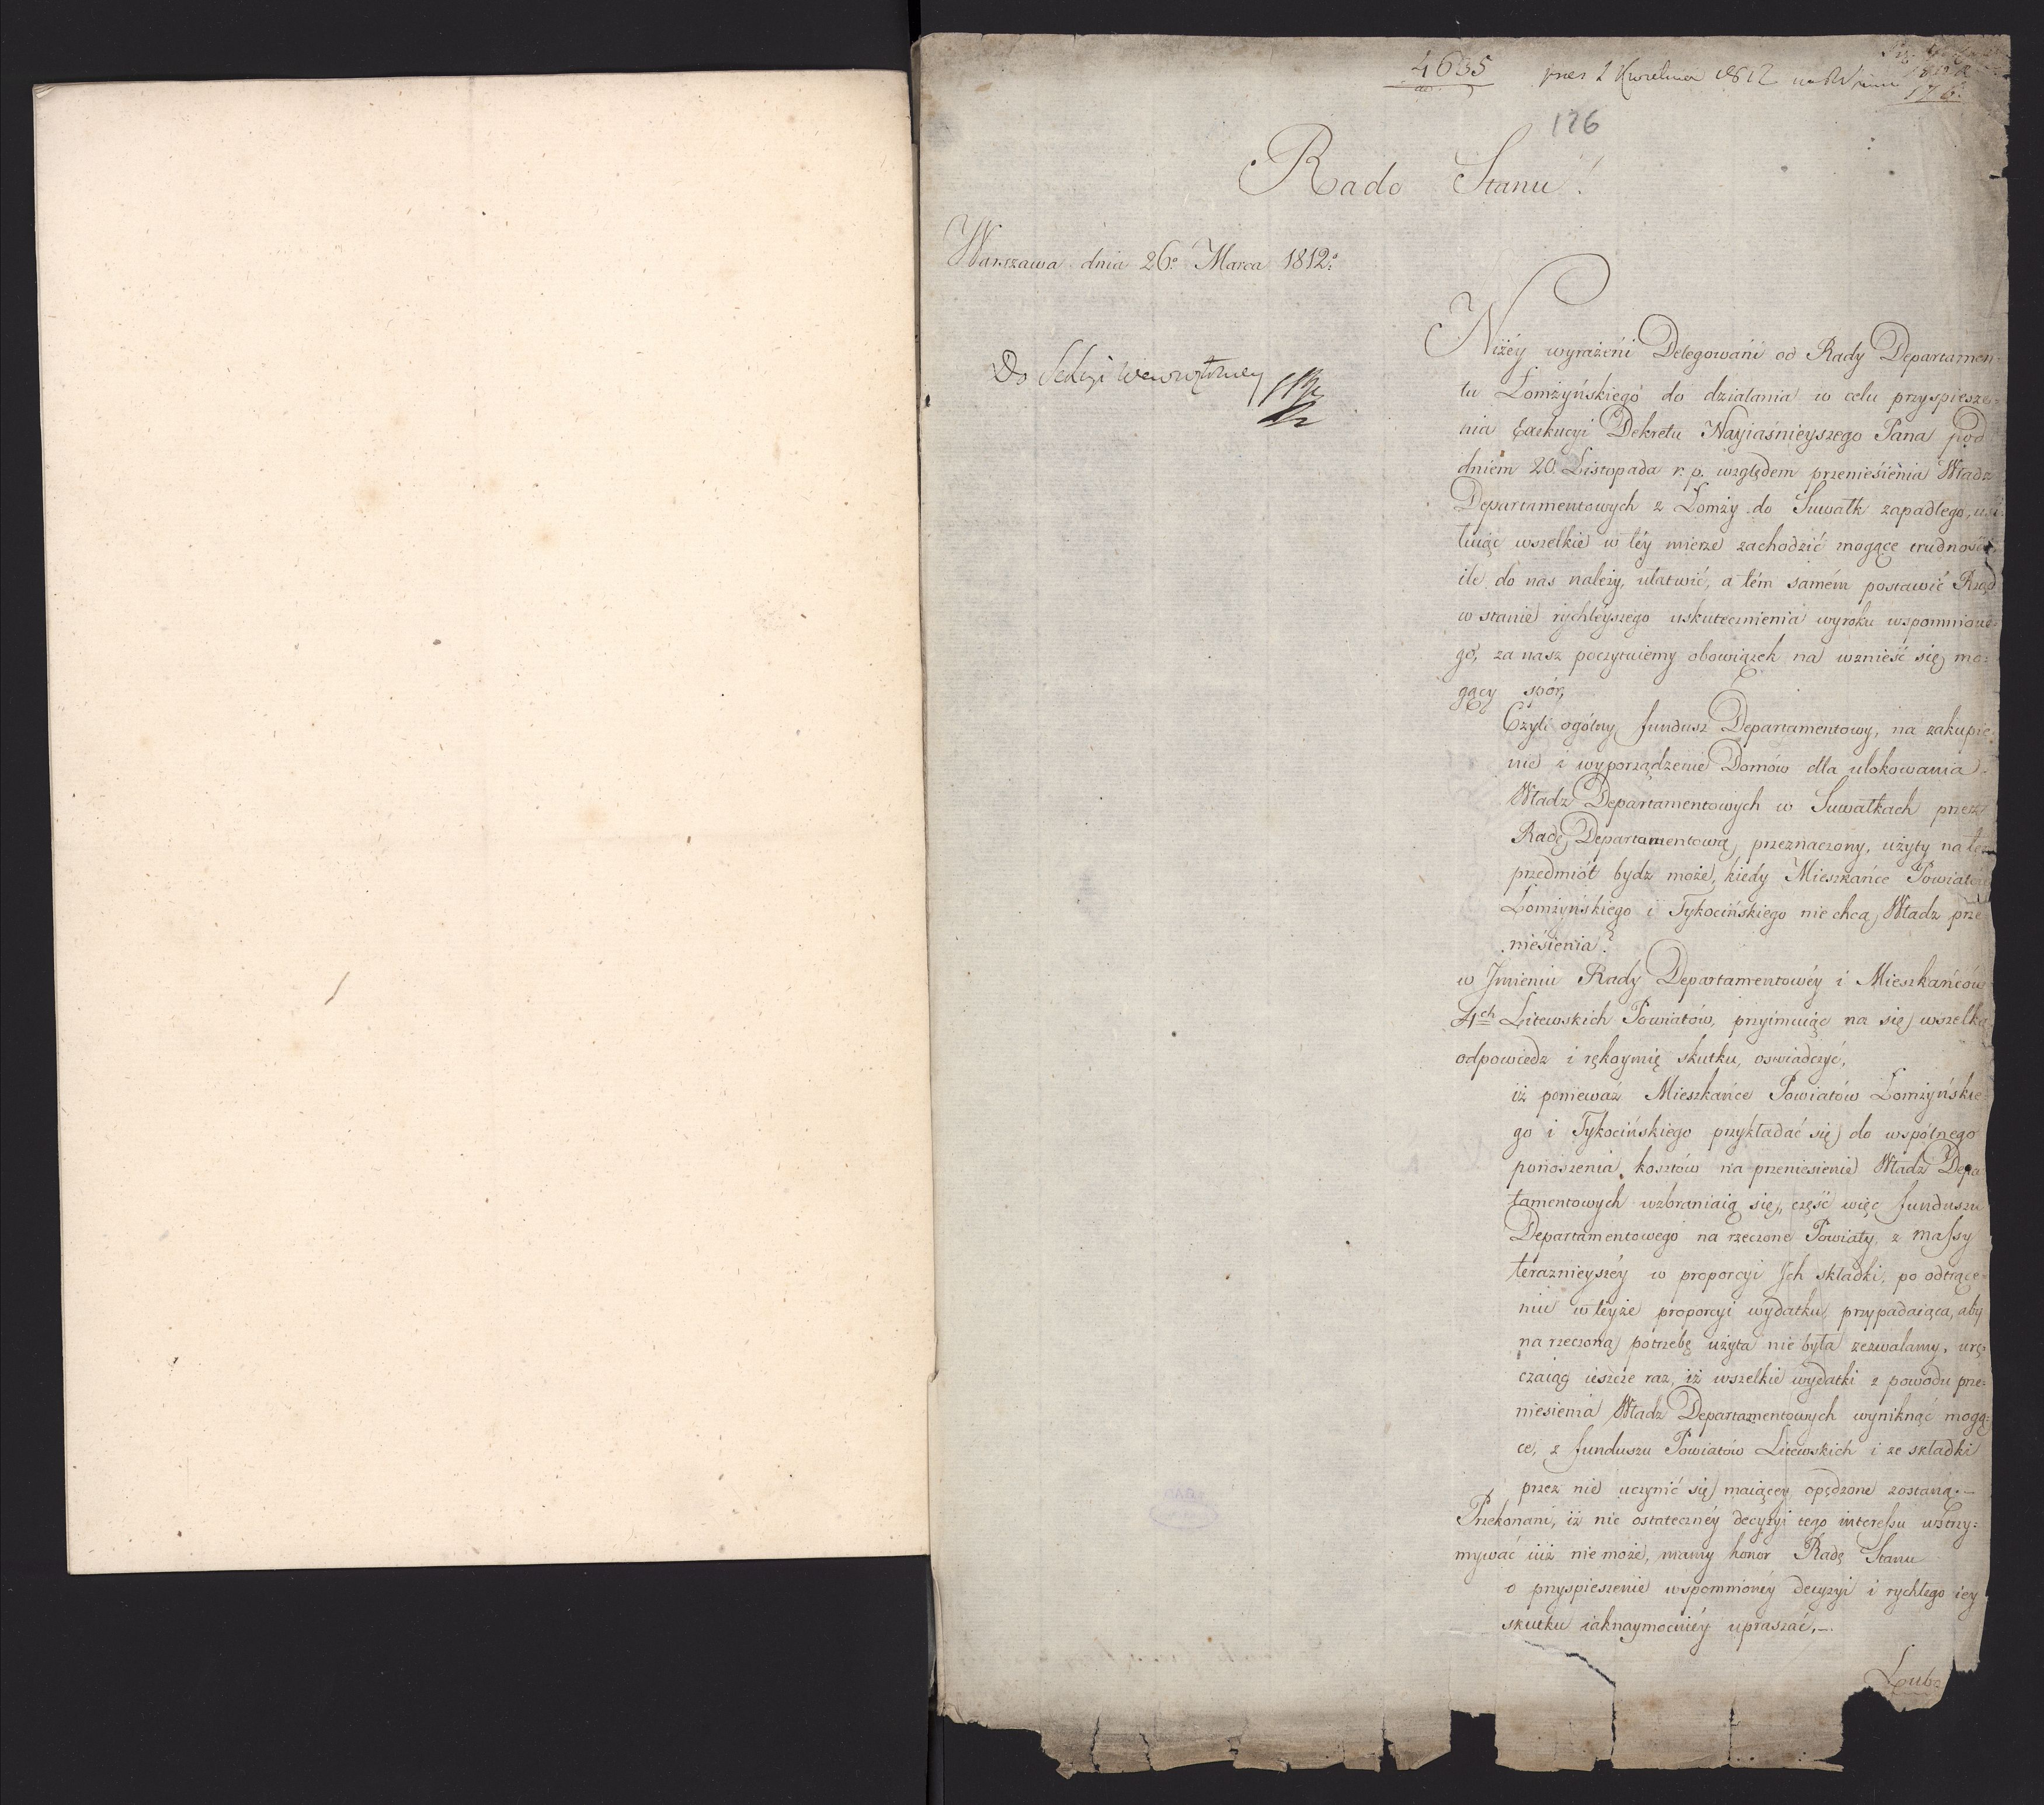 4635
pres 2 Kwietnia 1812
176
126
Rado Stanu!
Warszawa dnia 26º Marca 1812º
Do Sekcyi wewnętrzney
Niżéy wyrażeni Delegowani od Rady Departamen=
tu Łomżyńskiego do działania w celu przyspiesze=
nia Exekucyi Dekretu Nayiaśnieyszego Pana pod
dniem 20. Listopada r. p. względem przeniesienia Władz
Departamentowych z Łomży do Suwałk zapadłego, usi=
łuiąc wszelkie w téy mierze zachodzić mogące trudności
ile do nas należy, ułatwić, a tém samém postawić Rząd
w stanie rychléyszego uskutecznienia wyroku wspomnione=
go, za nasz poczytuiemy obowiązek na wznieść się mo=
gący spór,
Czyli ogólny fundusz Departamentowy, na zakupie=
nie i wyporządzenie Domów dla ulokowania
Władz Departamentowych w Suwałkach przez
Radę Departamentową przeznaczony, użyty na ten
przedmiót bydź może, kiedy Mieszkańce Powiatów
Łomżyńskiego i Tykocińskiego nie chcą Władz prze
niesienia?
w Jmieniu Rady Departamentowéy i Mieszkańców
4ch Litewskich Powiatów, przyimuiąc na się wszelką
odpowiedz i rękoymię skutku, oswiadczyć,
iż ponieważ Mieszkańce Powiatów Łomżyńskie=
go i Tykocińskiego przykładać się do wspólnego
ponoszenia kosztów na przeniesienie Władz Depar
tamentowych wzbraniaią się, część więc funduszu
Departamentowego na rzeczone Powiaty, z massy
teraznieyszéy w proporcyi Jch składki, po odtrące=
niu w téyże proporcyi wydatku przypadaiąca, aby
na rzeczoną potrzebę użyta nie była zezwalamy, urę=
czaiąc ieszcze raz, iż wszelkie wydatki z powodu prze=
niesienia Władz Departamentowych wyniknąć mogą=
ce, z funduszu Powiatów Litewskich i ze składki
przez nie uczynić się maiącéy opędzone zostaną.—
Przekonani, iż nic ostatecznéy decyzyi tego interessu wstrzy=
mywać iuż nie może, mamy honor Radę Stanu
o przyspieszenie wspomnionéy decyzyi i rychłego iey
skutku iaknaymocniéy upraszać.—
Lub=